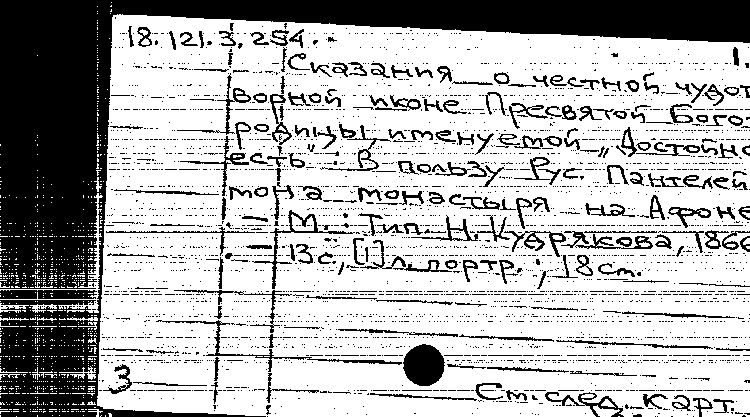 18.121.3.254.-
1.
Сказания о честной чудот
ворной иконе Пресвятой Бого-
родицы, именуемой „Достойно
есть": В пользу Рус. Пантелей
мона монастыря на Афоне
. — М.: Тип. Н. Кудрякова, 1866
. — 13 с., [1] л. портр.; 18 см.
3
См. след. карт.